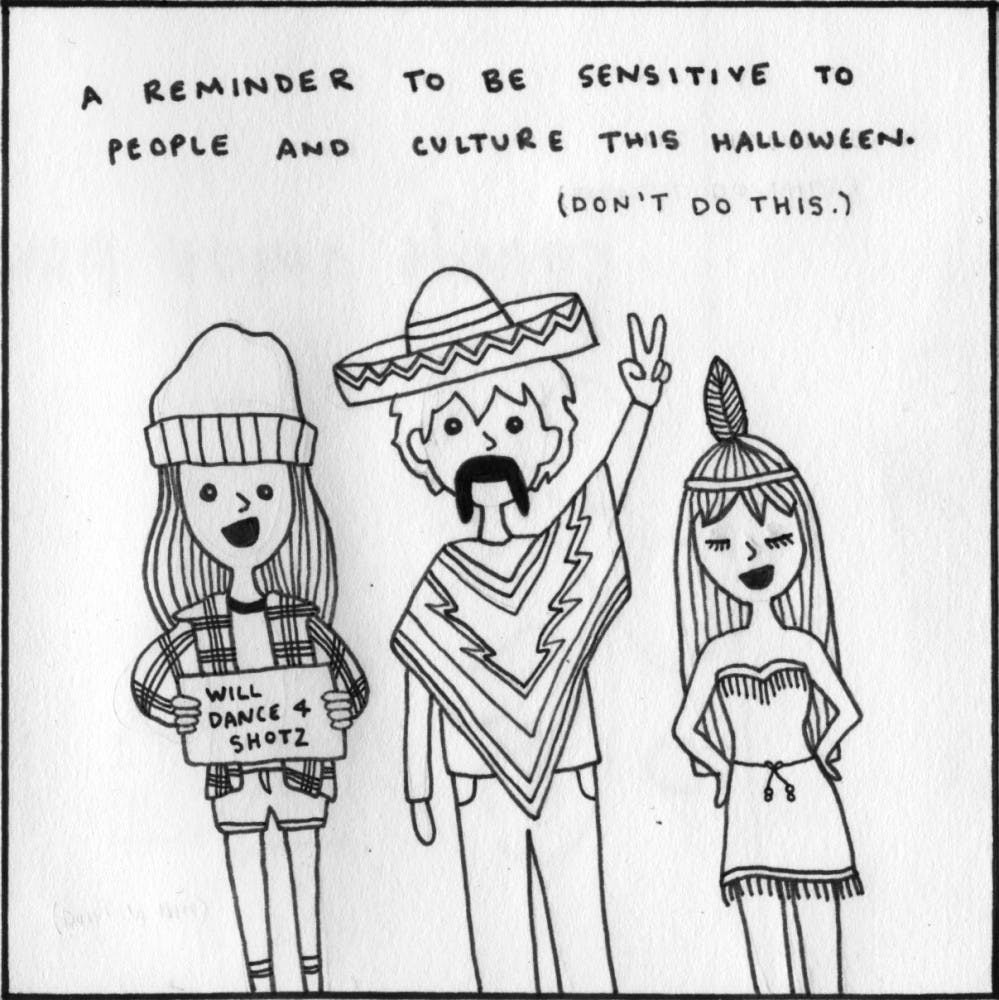 A REMINDER TO BE SENSITIVE TO
PEOPLE AND CULTURE THIS HALLOWEEN.
(DON'T DO THIS.)
WILL
DANCE 4
SHOTZ